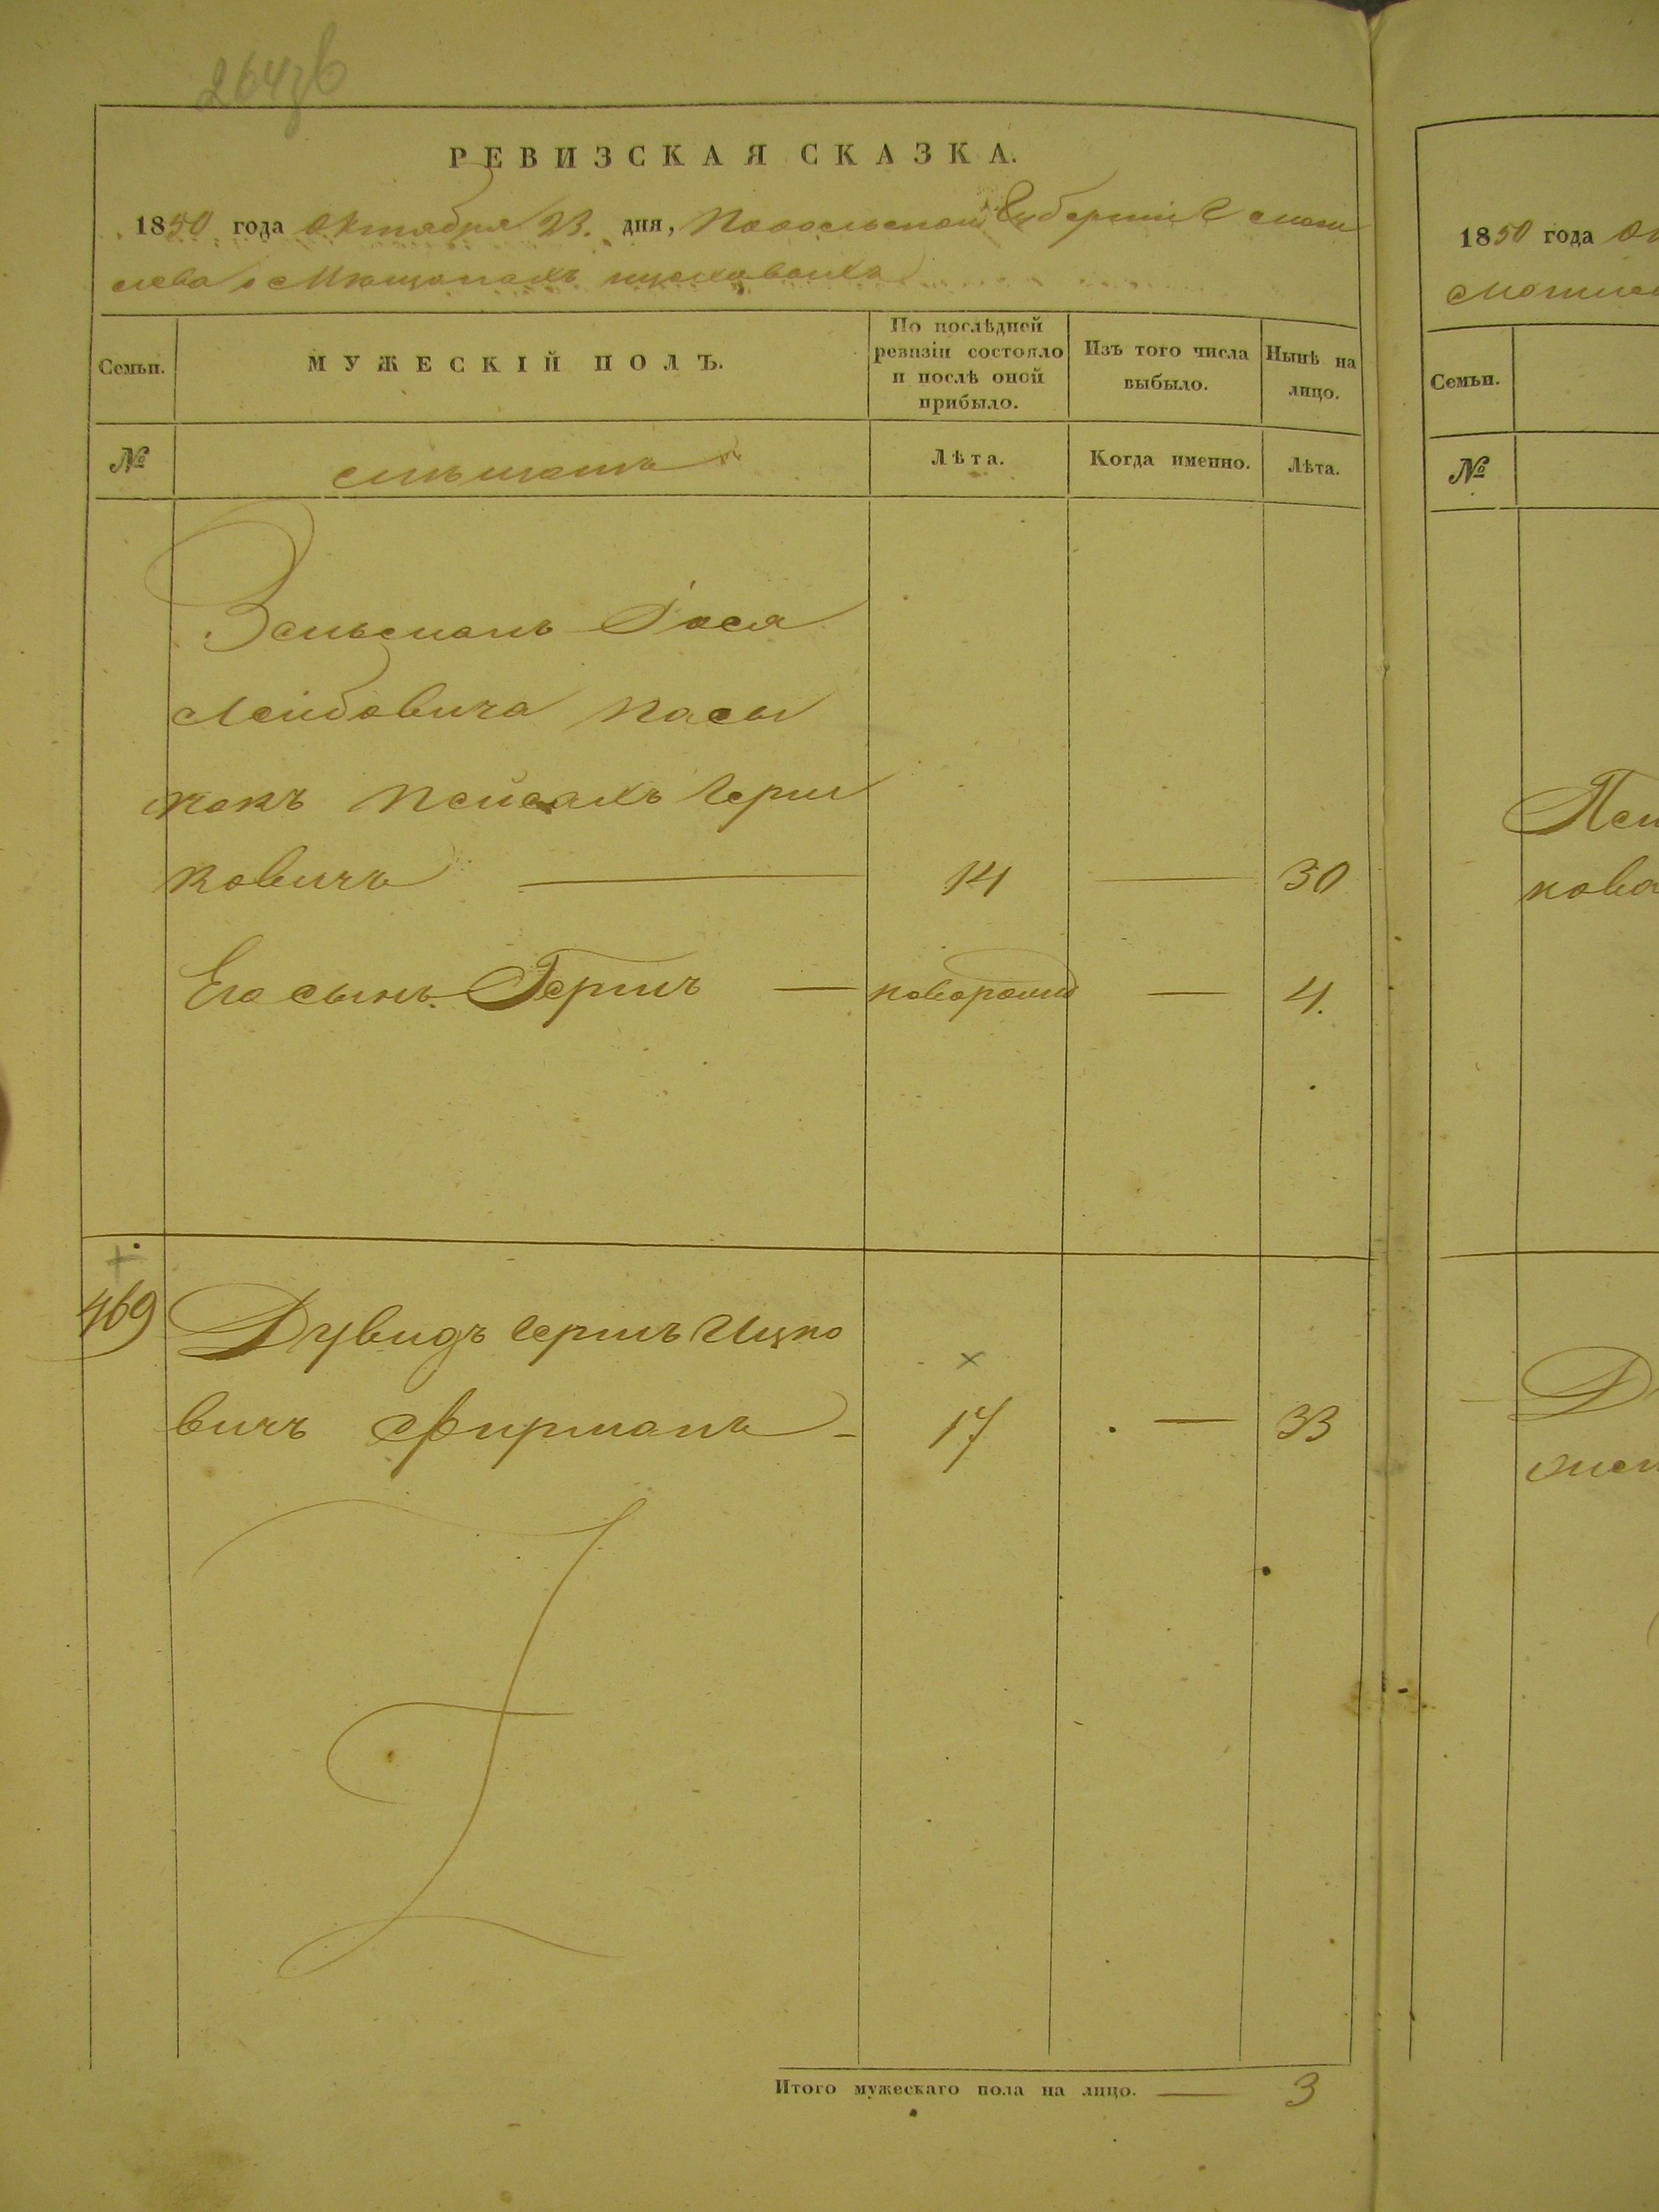 РЕВИЗСКАЯ СКАЗКА.
1850 года Октября 23. дня, Подольской Губернии Г Моги
лева о Мѣщанахъ
Семьи.
МУЖЕСКІЙ ПОЛЪ.
По послѣдней ревизіи состояло и послѣ оной прибыло.
Изъ того числа выбыло.
Нынѣ на лицо.
№
Лѣта.
Когда именно.
Лѣта.
Зельманъ Іося
Лейбовича пасы
нокъ Пейсахъ Герш
ковичъ — 14 — 30
Его сынъ Гершъ — новорожд — 4.
469
Дувидъ Гершъ Ицко
вичъ Фирманъ - 17 — 33
Итого мужескаго пола на лицо. — 3
1850 года Ок
Могиле
Семьи.
№
Пей
кова
Д